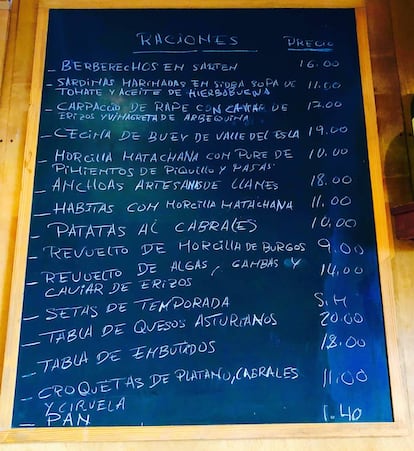 RACIONES PRECIO
- BERBERECHOS EN SARTEN 16.00
- SARDINAS MARINADAS EN SIDRA SOPA DE
TOMATE Y ACEITE DE HIERBABUENA 11.00
- CARPACCIO DE RAPE CON CAVIAR DE
ERIZOS Y VINAGRETA DE ARBEQUINA 17.00
- CECINA DE BUEY DE VALLE DEL ESLA 19.00
- MORCILLA MATACHANA CON PURE DE
PIMIENTOS DE PIQUILLO Y PASAS 10.00
- ANCHOAS ARTESANAS DE LLANES 18.00
- HABITAS CON MORCILLA MATACHANA 11.00
- PATATAS AL CABRALES 10.00
- REVUELTO DE MORCILLA DE BURGOS 9.00
- REVUELTO DE ALGAS, GAMBAS Y
CAVIAR DE ERIZOS 14.00
- SETAS DE TEMPORADA S.M
- TABLA DE QUESOS ASTURIANOS 20.00
- TABLA DE EMBUTIDOS 18.00
- CROQUETAS DE PLATANO, CABRALES
Y CIRUELA 11.00
- PAN 1.40